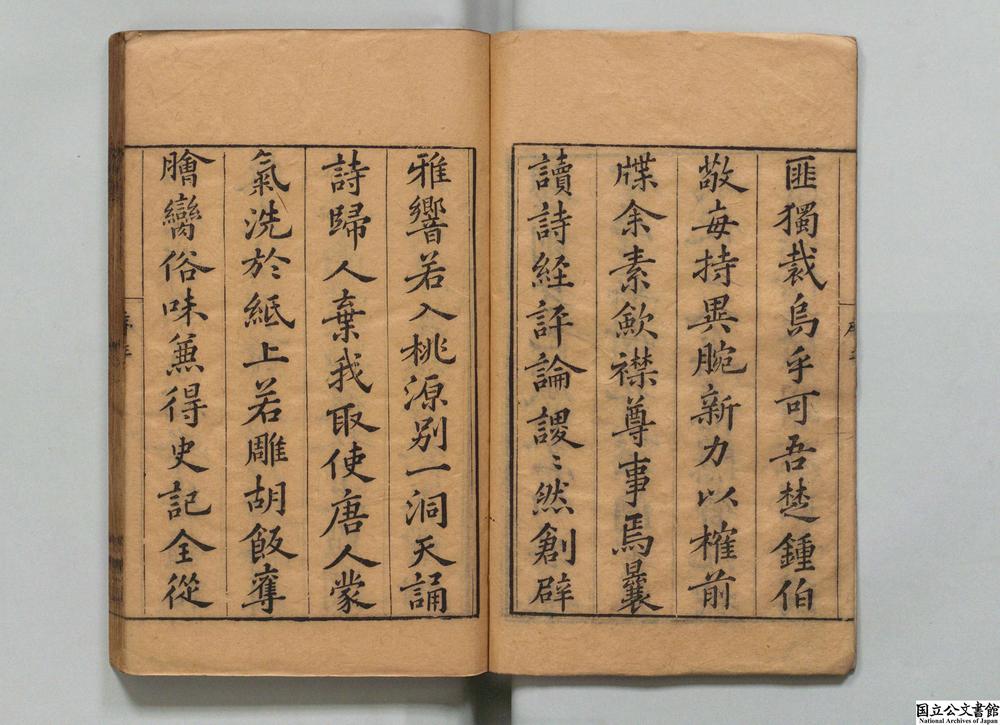 匪獨裁烏乎可吾楚鍾伯
敬每持異腕新力以榷前
牒余素歛襟尊事焉曩
讀詩經評論謖〻然創辟
雅響若入桃源别一洞天誦
詩歸人棄我取使唐人蒙
氣洗於紙上若雕胡飯奪
膾臠俗味兼得史記全從
国立公文書館
National Archives of Japan